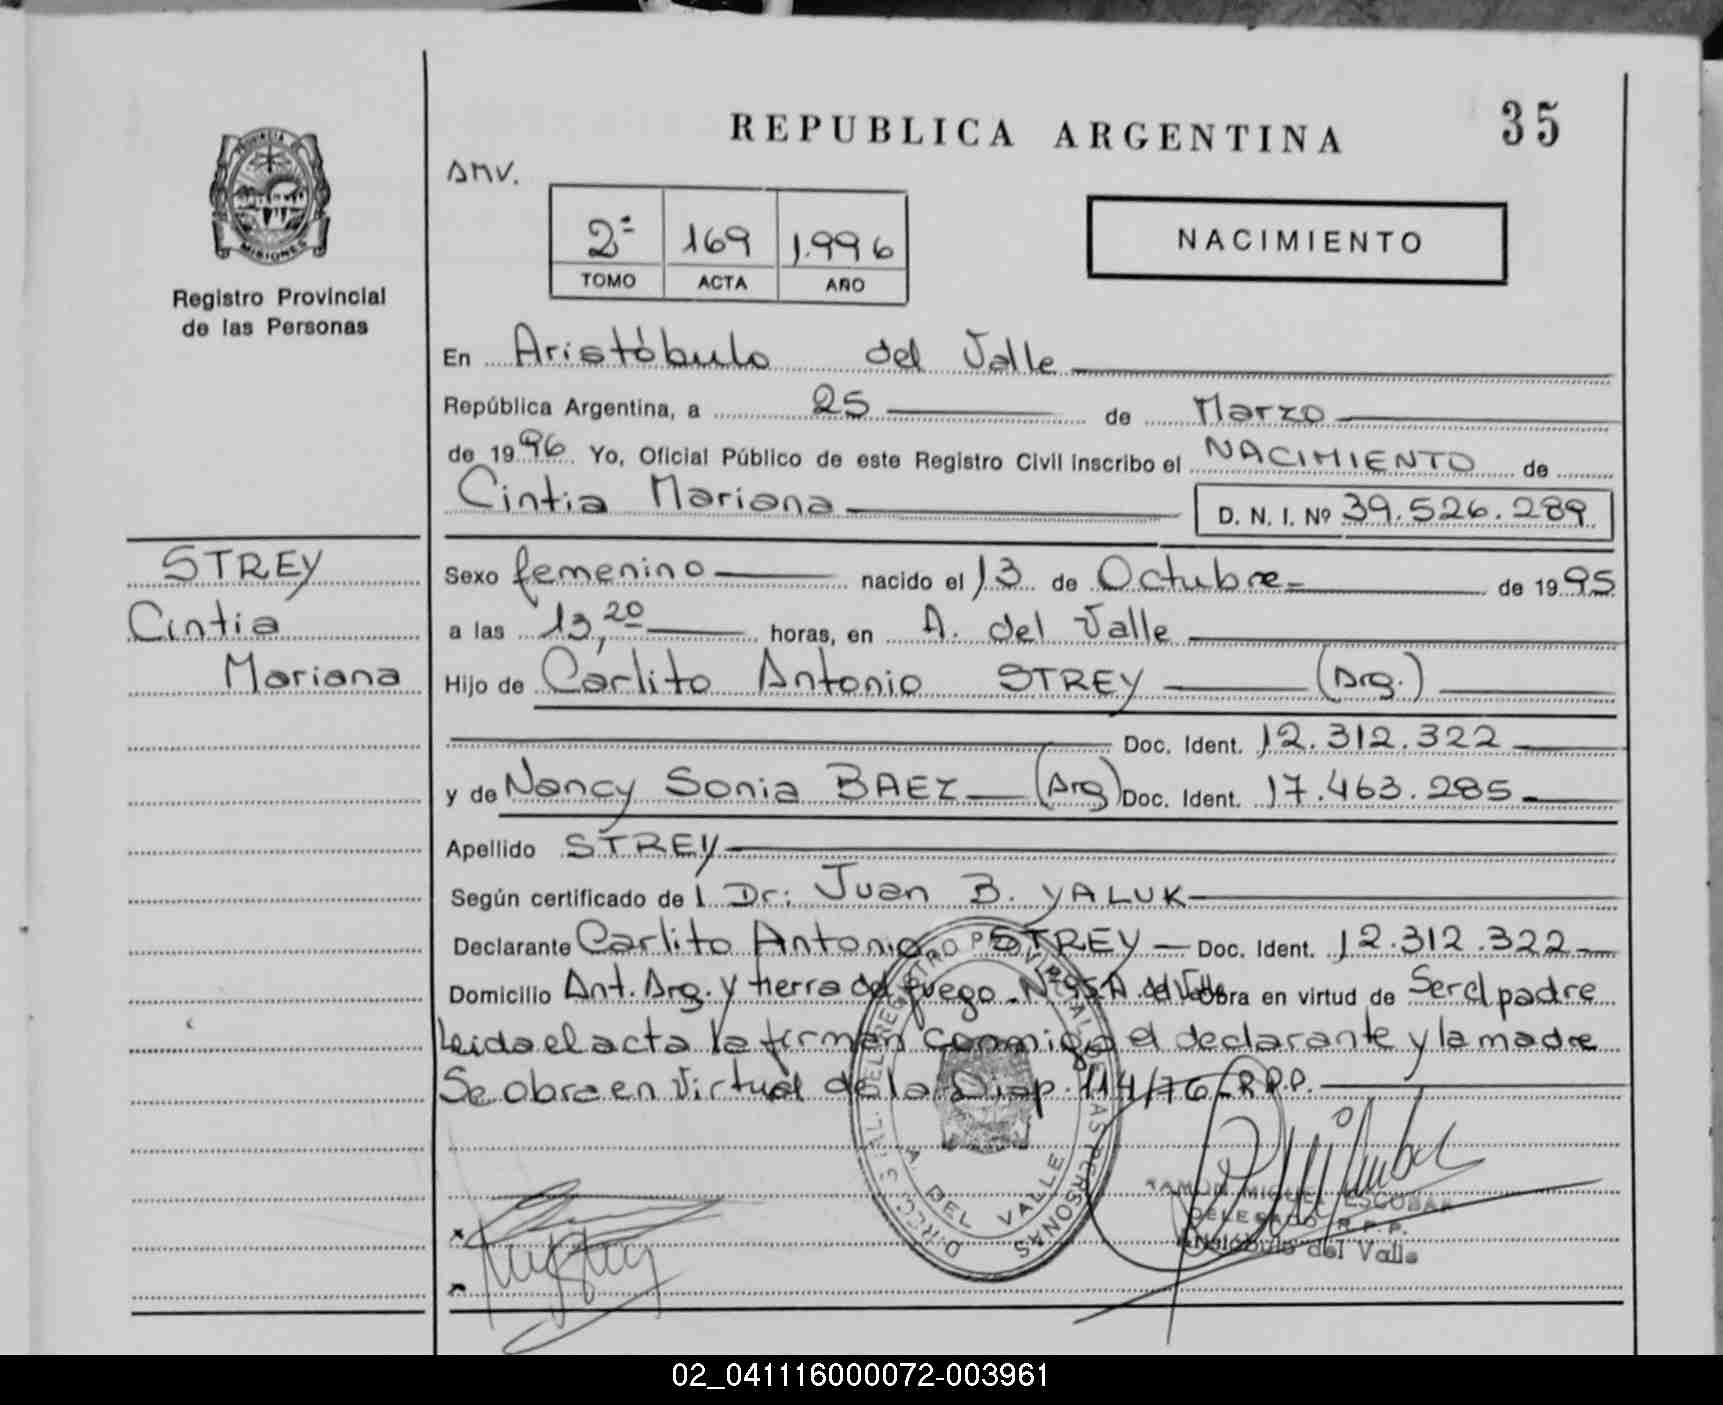 REPUBLICA ARGENTINA
35
PROVINCIA DE
MISIONES
Registro Provincial
de las Personas
AMV.
2ª 169 1.996
TOMO ACTA AÑO
NACIMIENTO
En Aristóbulo del Valle
República Argentina, a 25 de Marzo
de 1996 Yo, Oficial Público de este Registro Civil inscribo el NACIMIENTO de
Cintia Mariana D. N. I. Nº 39.526.289
STREY
Cintia
Mariana
Sexo femenino nacido el 13 de Octubre de 1995
a las 13,20 horas, en A. del Valle
Hijo de Carlito Antonio STREY (Arg.)
Doc. Ident. 12.312.322
y de Nancy Sonia BAEZ (Arg) Doc. Ident. 17.463.285
Apellido STREY
Según certificado de l Dr: Juan B. YALUK
Declarante Carlito Antonio STREY Doc. Ident. 12.312.322
Domicilio Ant. Arg. y tierra del fuego. Nº 95 A. del Valle Obra en virtud de Ser el padre
Leida el acta la firman conmigo el declarante y la madre
Se obra en Virtud de la Disp. 114/76 R.P.P.
DIREC. GRAL. DEL REGISTRO PROVINCIAL DE LAS PERSONAS
A. DEL VALLE
RAMON MIGUEL ESCOBAR
DELEGADO R.P.P.
Aristóbulo del Valle
02_041116000072-003961